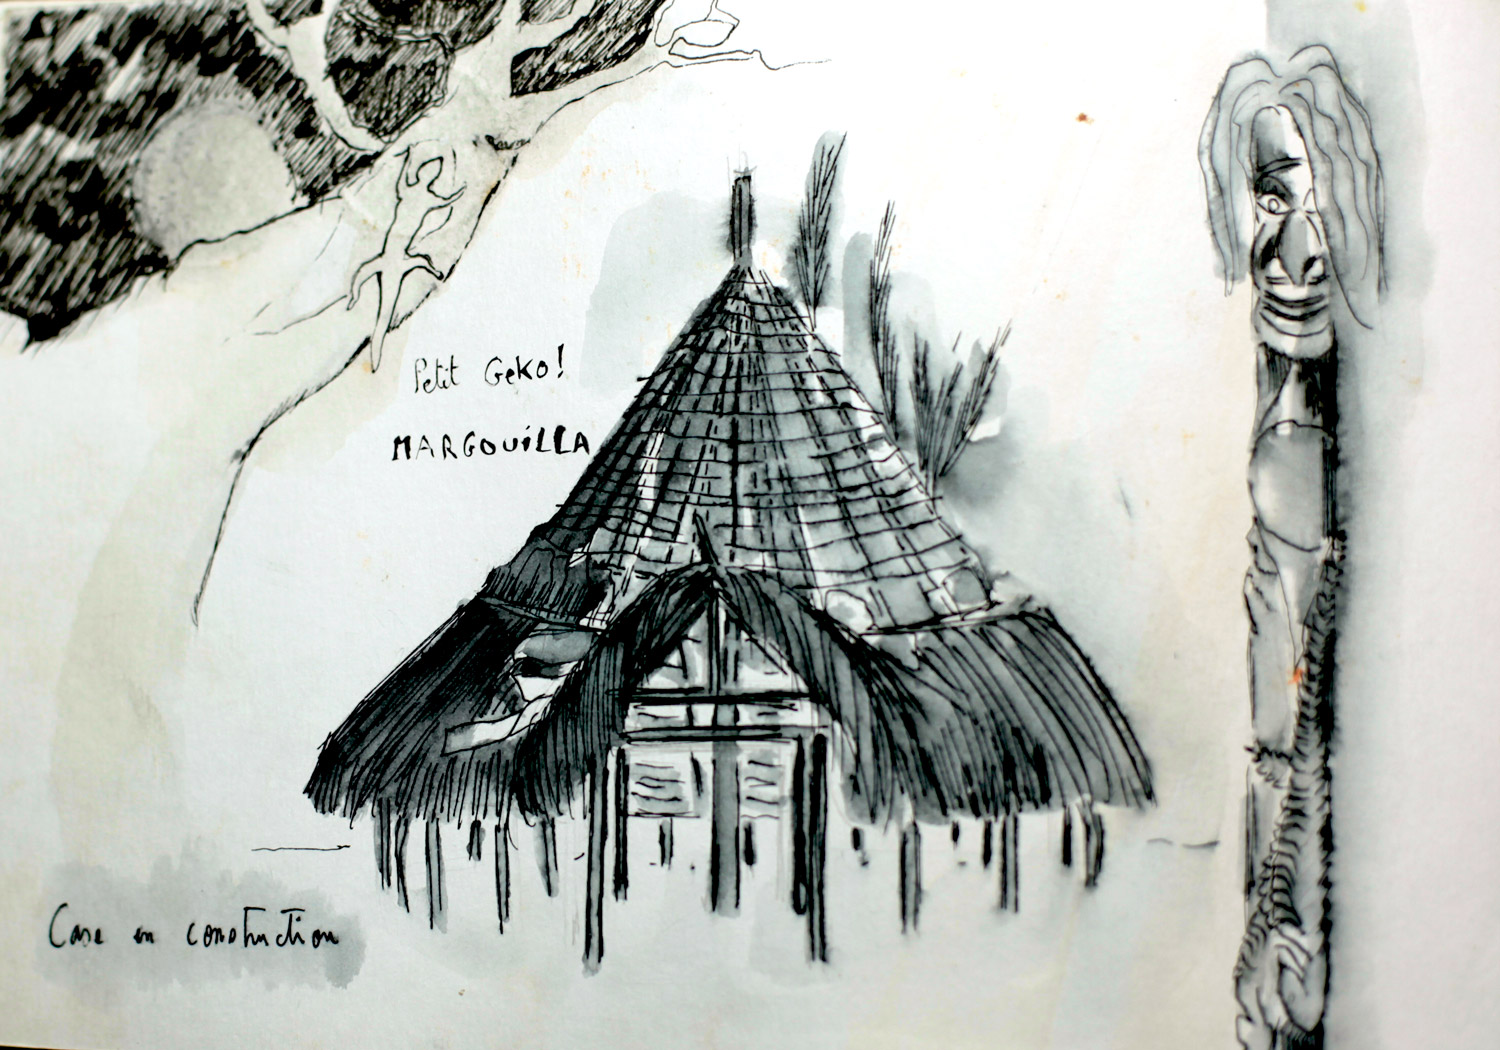 Petit Geko!
MARGOUILLA
Case en construction